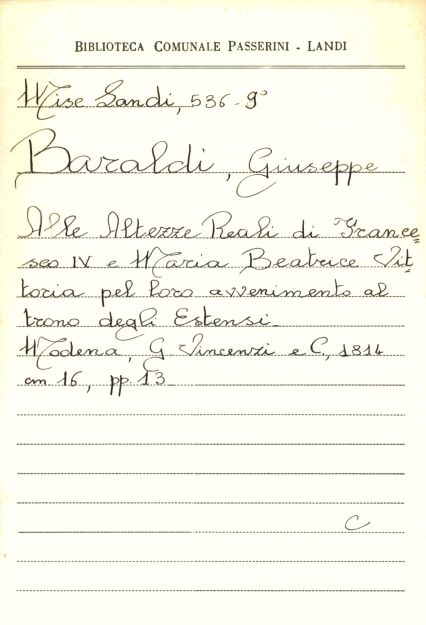 BIBLIOTECA COMUNALE PASSERINI - LANDI
Misc Landi, 536-9°
Baraldi, Giuseppe
Alle Altezze Reali di France=
sco IV e Maria Beatrice Vit=
toria pel loro avvenimento al
trono degli Estensi_
Modena, G. Vincenzi e C., 1814
cm 16, pp. 13_
C